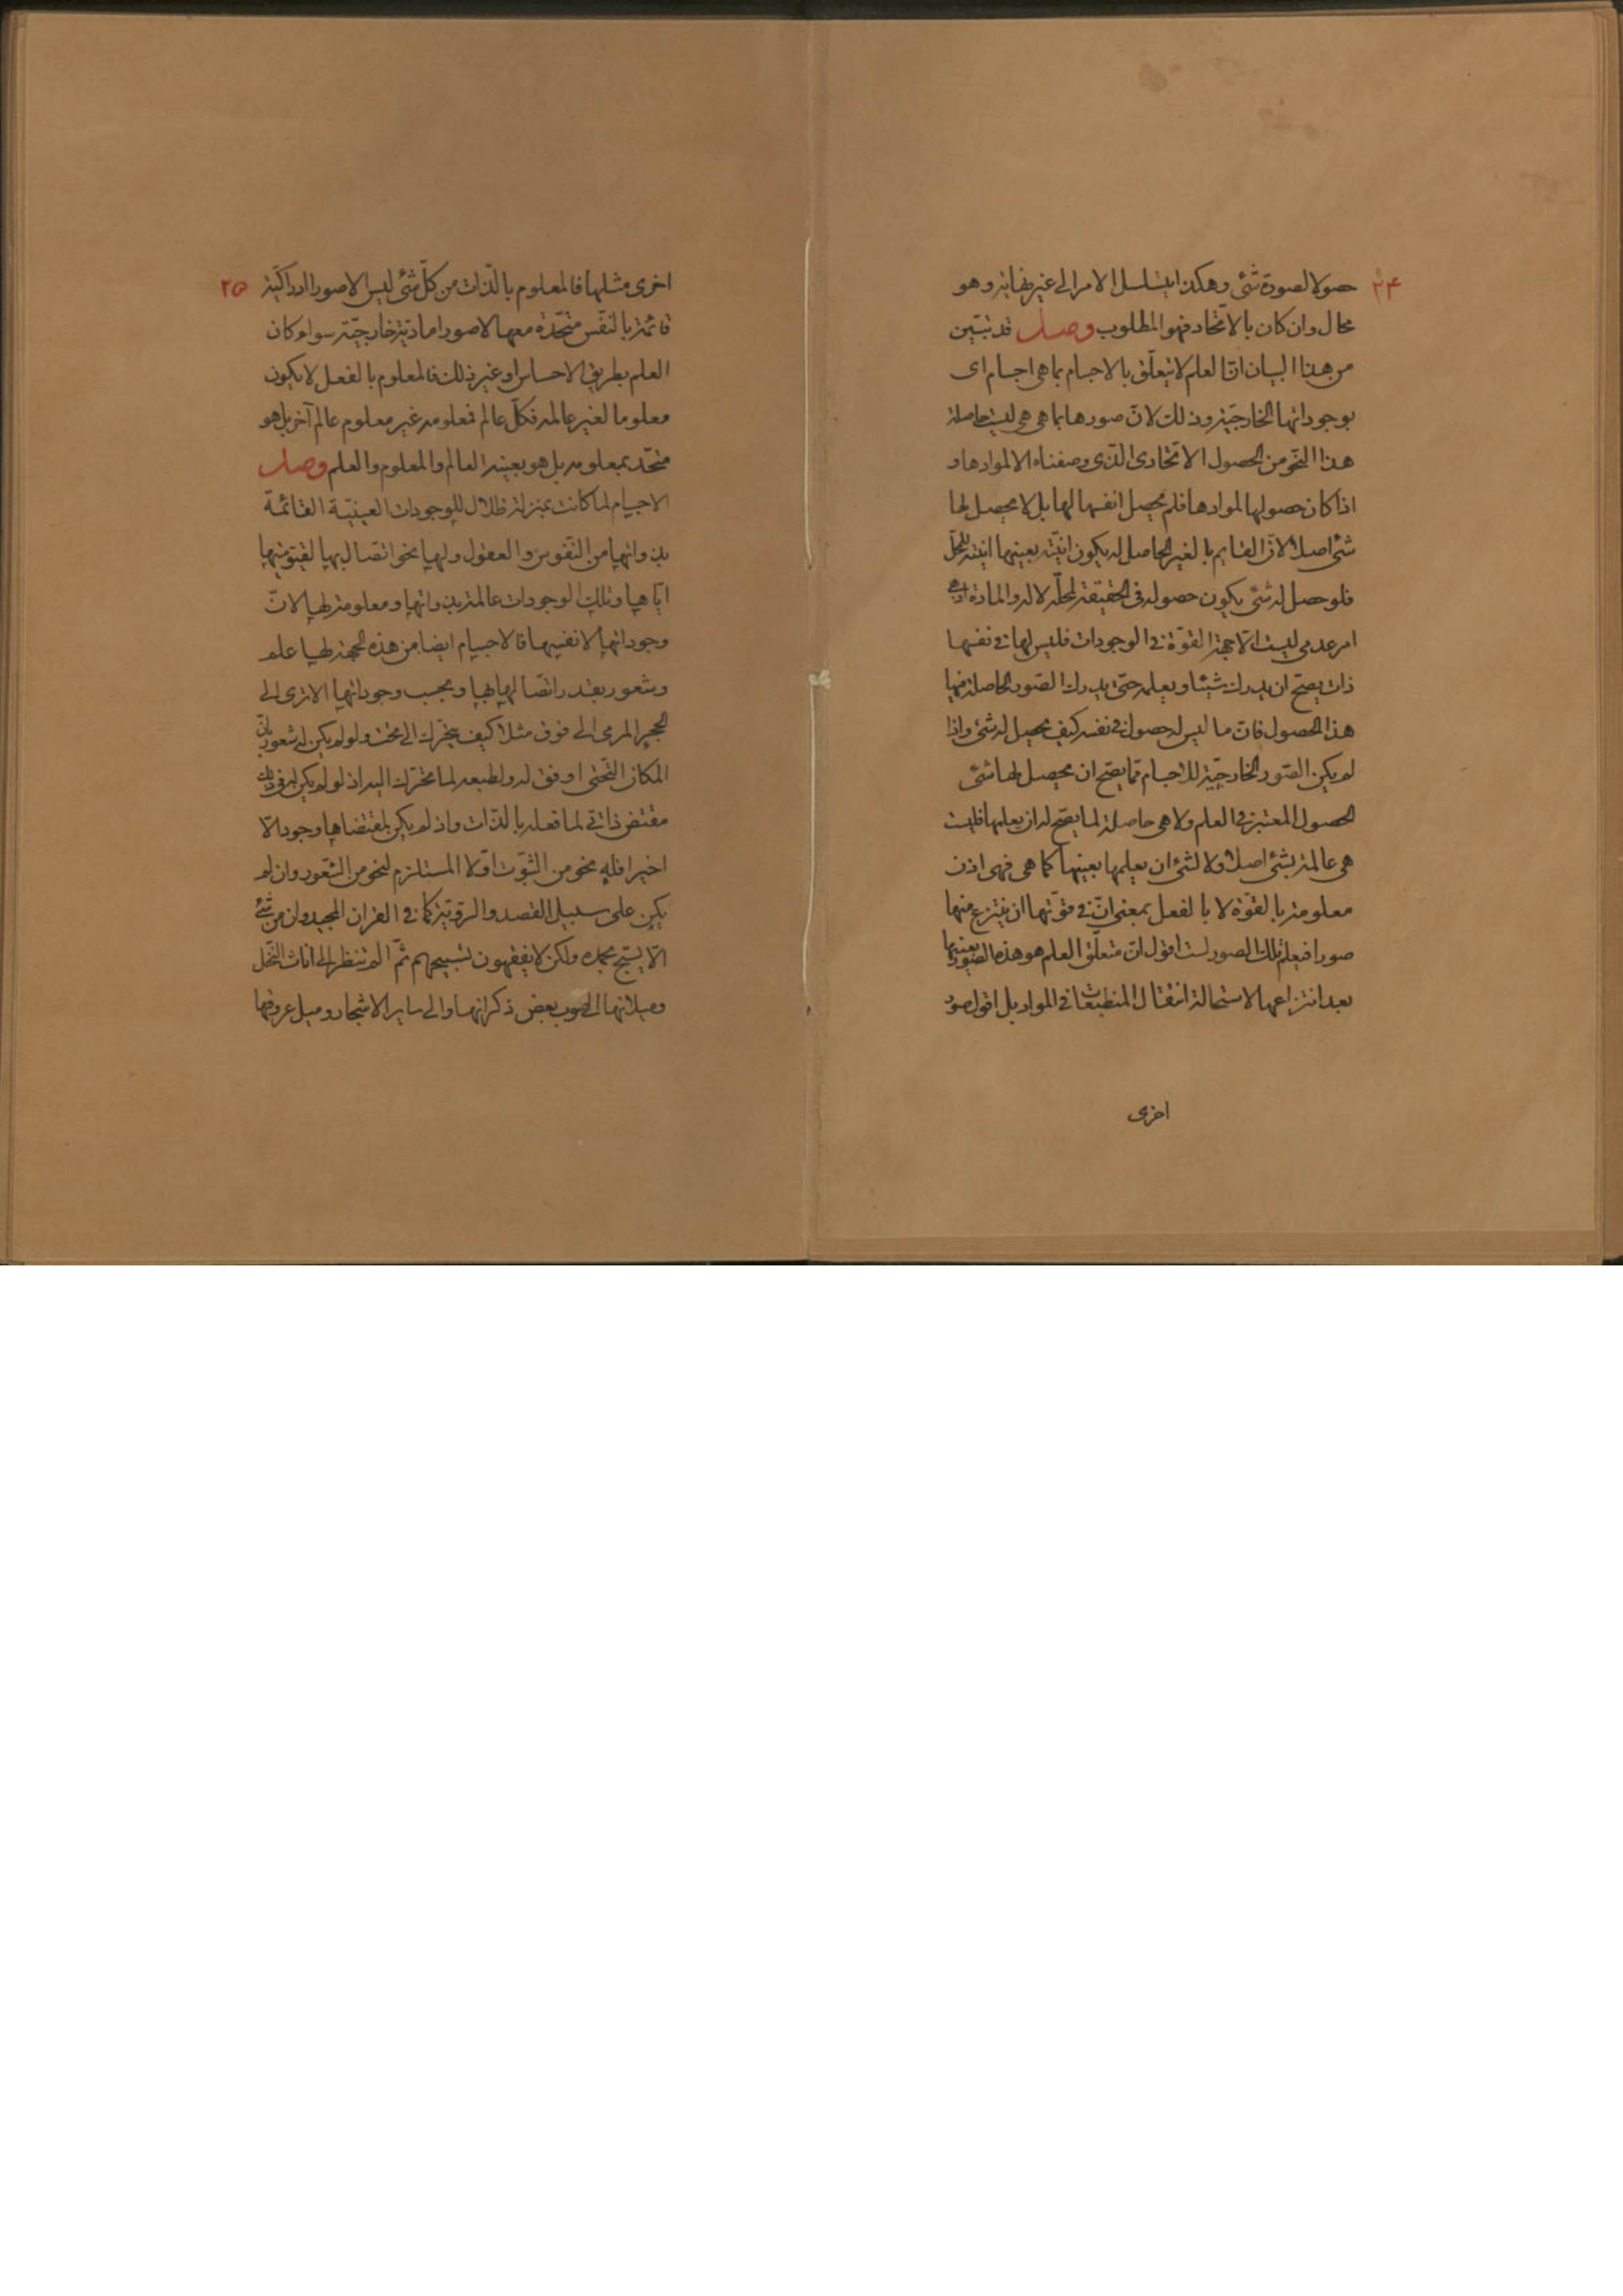 ٢٤
حصولا لصورة شئ وهكذا يتسلسل الامر الى غير نهاية وهو
محال وان كان بالاتحاد فهو المطلوب وصل قد تبيّن
من هذا البيان انّ العلم لا يتعلّق بالاجسام بما هى اجسام اى
بوجوداتها الخارجيّة وذلك لانّ صورها بما هى هى ليست حاصلة
هذا النحو من الحصول الاتحادى الذى وصفناه الا لموادها و
اذا كان حصولها لموادها فلم يحصل انفسها لها بل لا يحصل لها
شئ اصلا لانّ القايم بالغير الحاصل له يكون انيّته بعينها انيته للمحلّ
فلو حصل له شئ يكون حصوله فى الحقيقة لمحلّه لا له والمادة
امر عدمى ليست الّا جهة القوّة فى الوجودات فليس لها فى نفسها
ذات يصحّ ان يدرك شيئا ويعلمه حتى يدرك الصّور الحاصلة فيها
هذا الحصول فانّ ما ليس له حصول فى نفسه كيف يحصل له شئ واذا
لم يكن الصّور الخارجيّة للاجسام ممّا يصحّ ان يحصل لها شئ
الحصول المعتبر فى العلم ولا هى حاصلة لما يصحّ له ان يعلمها فليست
هى عالمة بشئ اصلا ولا لشئ ان يعلمها بعينها كما هى فهى اذن
معلومة بالقوّة لا بالفعل بمعنى انّ فى قوّتها ان ينتزع منها
صورا فيعلم تلك الصور لست اقول انّ متعلّق العلم هو هذه الصور بعينها
بعد انتزاعها لاستحالة انتقال المنطبعات فى المواد بل اقول صور
اخرى
٢٥
اخرى مثلها فالمعلوم بالذّات من كلّ شئ ليس الا صورا ادراكيّة
قائمة بالنفس متحّدة معها لا صورا مادّية خارجيّة سواء كان
العلم بطريق الاحساس او غير ذلك فالمعلوم بالفعل لا يكون
معلوما لغير عالمه فكلّ عالم فمعلومه غير معلوم عالم آخر بل هو
متحّد بمعلومه بل هو بعينه العالم والمعلوم والعلم وصل
الاجسام لما كانت بمنزلة ظلال للوجودات العينيّة القائمة
بذواتها من النّفوس والعقول ولها نحو اتصال بها لقيّوميتها
ايّاها وتلك الوجودات عالمة بذواتها ومعلومة لها لانّ
وجوداتها لانفسها فالاجسام ايضا من هذه الجهة لها علم
وشعور بقدر اتصالها بها وبحسب وجوداتها الا ترى الى
الحجر المرمى الى فوق مثلا كيف يتحرك الى تحت ولو لم يكن له شعور بانّ
المكان التّحتى اوفق له ولطبعه لما تحرّك اليه اذ لو لم يكن له فى ذلك
مقتض ذاتى لما فعله بالذّات واذ لم يكن لمقتضاها وجود الّا
اخيرا فله نحو من الثبوت اوّلا المستلزم لنحو من الشّعور وان لم
يكن على سبيل القصد والرويّة كما فى القران المجيد وان من شئ
الّا يسبّح بحمده ولكن لا تفقهون تسبيحهم ثمّ الم تنظر الى اناث النّخل
وميلانها الى صوب بعض ذكرانها والى ساير الاشجار وميل عروقها